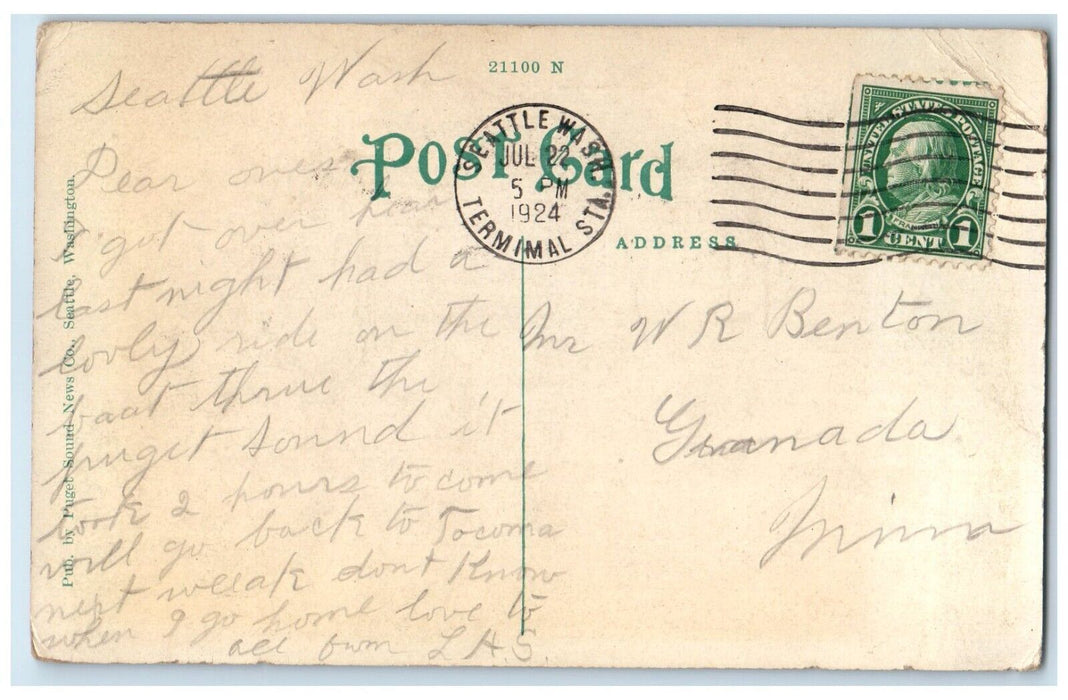 21100 N
POST CARD
SEATTLE WASH.
JUL 22
5 PM
1924
TERMIMAL STA.
UNITED STATES POSTAGE
FRANKLIN
1 CENT 1
ADDRESS
Pub. by Puget Sound News Co., Seattle, Washington.
Seattle Wash
Dear ones
I got over hear
last night had a
lovly ride on the
baat thrue the
puget sound it
took 2 hours to come
will go back to Tacoma
next weeak dont Know
when I go home love to
all from L A S.
Mr W R Benton
Granada
Minn